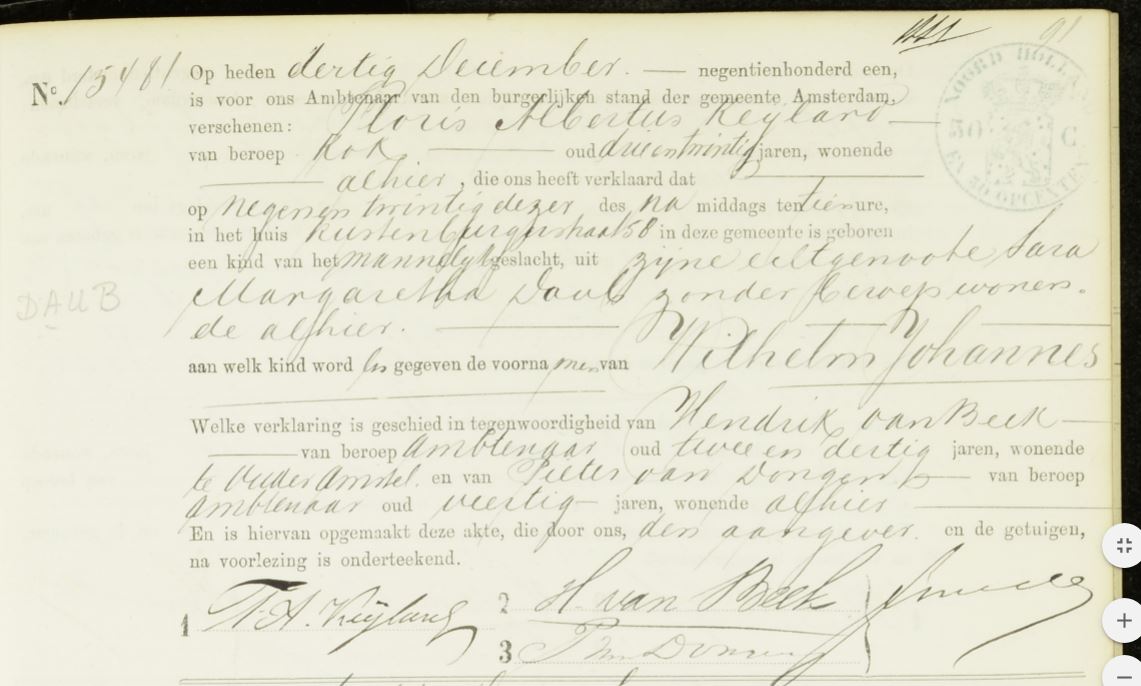 91
No. 15481
Op heden dertig December. — negentienhonderd een,
is voor ons Ambtenaar van den burgerlijken stand der gemeente Amsterdam,
verschenen: Floris Albertus Keyland —
van beroep Kok — oud drieentwintig jaren, wonende
— alhier, die ons heeft verklaard dat —
op negenentwintig dezer des na middags ten tien ure,
in het huis Rustenburgerstraat 58 in deze gemeente is geboren
een kind van het mannelijk geslacht, uit zijne echtgenoote Sara
Margaretha Daub zonder beroep wonen-
de alhier. —
aan welk kind word en gegeven de voorna men van Wilhelm Johannes
Welke verklaring is geschied in tegenwoordigheid van Hendrik van Beek —
— van beroep ambtenaar oud twee en dertig jaren, wonende
te Ouder Amstel. en van Pieter van Dongen — van beroep
ambtenaar oud veertig — jaren, wonende alhier —
En is hiervan opgemaakt deze akte, die door ons, den aangever. en de getuigen,
na voorlezing is onderteekend.
1 F. A. Keyland
2 H. van Beek
3 P van Dongen
DAUB
NOORD HOLLAND
50 C
EN 38 OPCENTEN